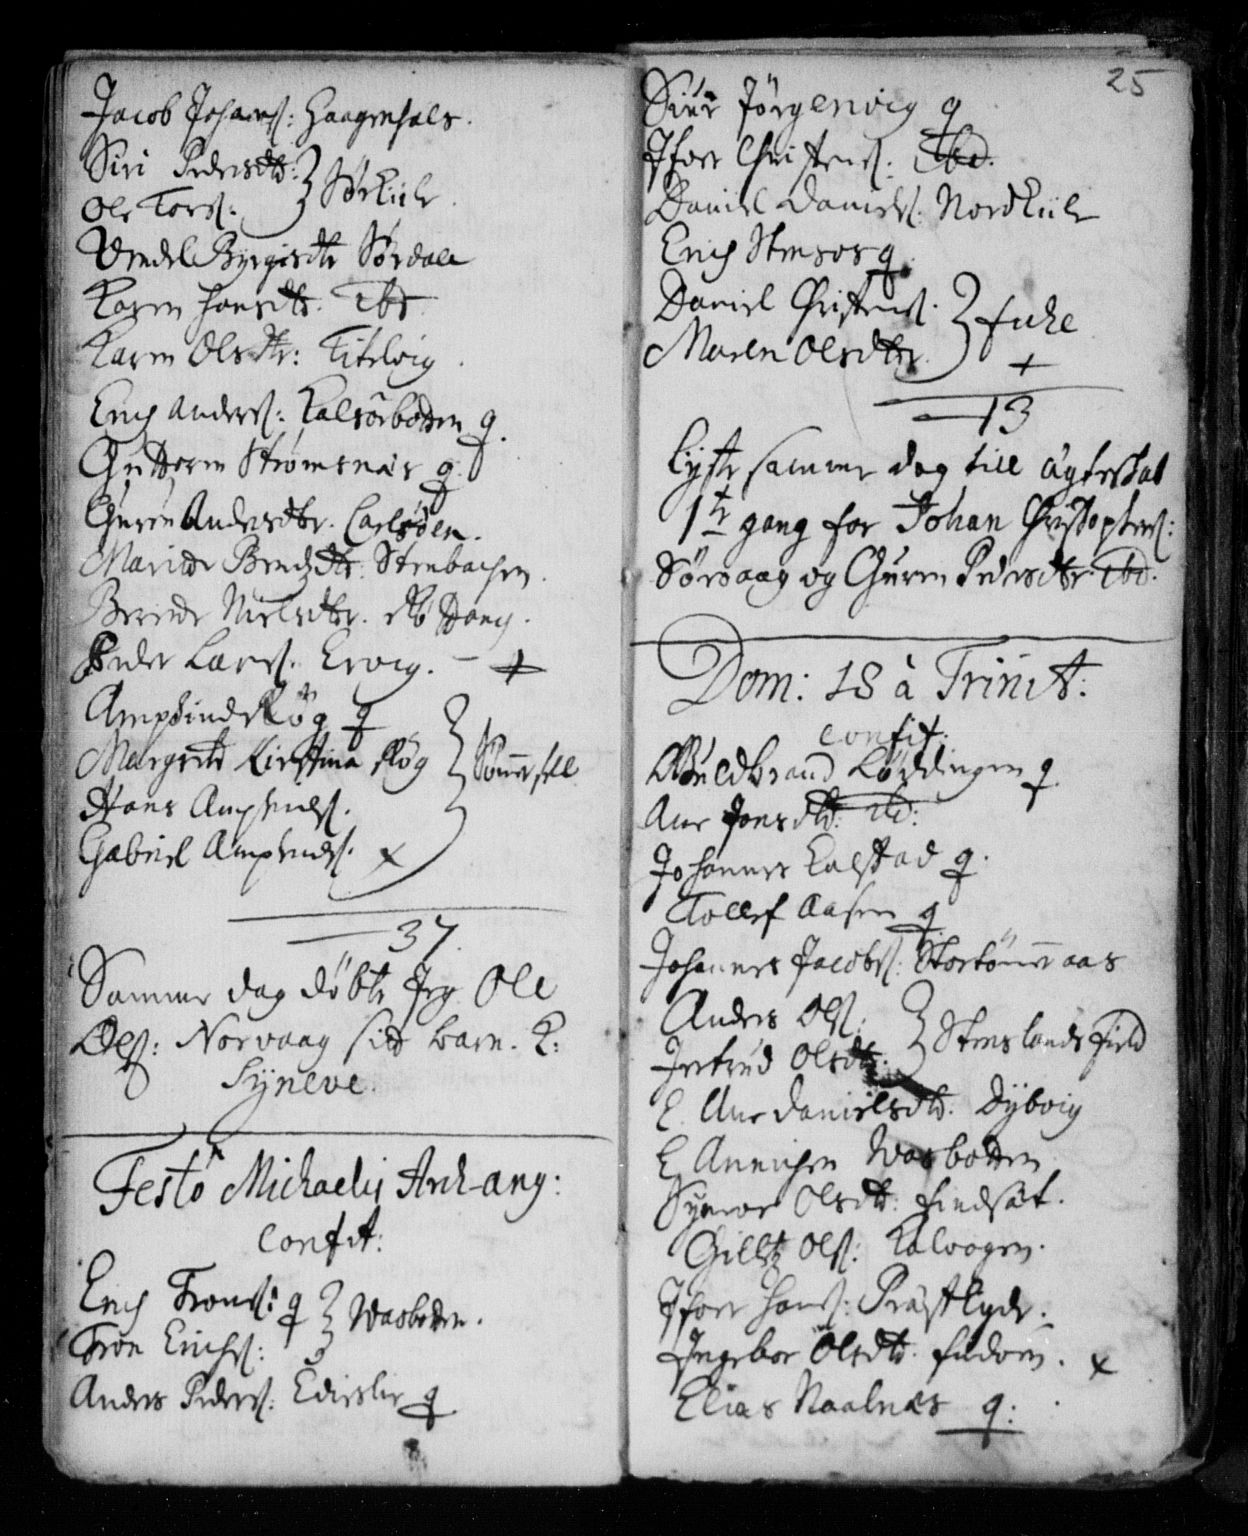 Jacob Johans: Haagenhals.
Siri Pedersdtr: } Sørkiile
Ole Tors.
Vendel Byrgisdtr Sørdale
Karen Hansdtr. Ibd
Karen Olsdtr: Titelvig.
Erich Anders: Kalsørbotten q.
Guttorm Strømsnæs q
Guren Andersdtr. Carlsøen.
Maritte Bendzdtr. Stenbachen.
Berrede Nielsdtr.
Peder Lars. Ervig. +
Amphind Røg q
Margrete Kirstina Røg } Sømerseell
Hans Amphinds.
Gabriel Amphinds. x
37.
Samme dag døbte Jeg Ole
Ols: Norvaag sit barn. K:
Syneve.
Festo Michaelis Arch-ang:
confit:
Erich Trons: q } Wasbotten.
Tron Erichs:
Anders Peders: Edislie q
25
Siur Jørgenvig q
Ifver Christens: Ibd.
Daniel Daniels: Nordkiile
Erich Stensøs q.
Daniel Christens. } Fuhe
Maren Olsdtr. +
13
Liyste samme dag till ægteskab
1te gang for Johan Christophers:
Sørvaag og Guren Pedersdtr. Ibd.
Dom: 18 à Trinit:
confit:
Guldbrand Løddingen q
Ane Jonsdtr: Ibd:
Johannes Kalstad q.
Tollef Aasen q
Johannes Jacobs: Stortømeraas
Anders Ols: } Stenslandsfield
Jertrud Olsdtr.
E. Ane Danielsdtr. Dybvig
E. Annichen Wasbotten
Synove Olsdtr. Findsæt.
Gillæ Ols: Kalvogen.
Ifver Hans: Præstlyde.
Ingebor Olsdtr. x
Elias Naalnæs q: